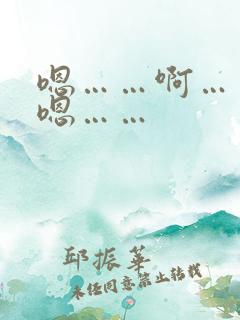 嗯……啊…
嗯……
邱振華
未经同意禁止转载